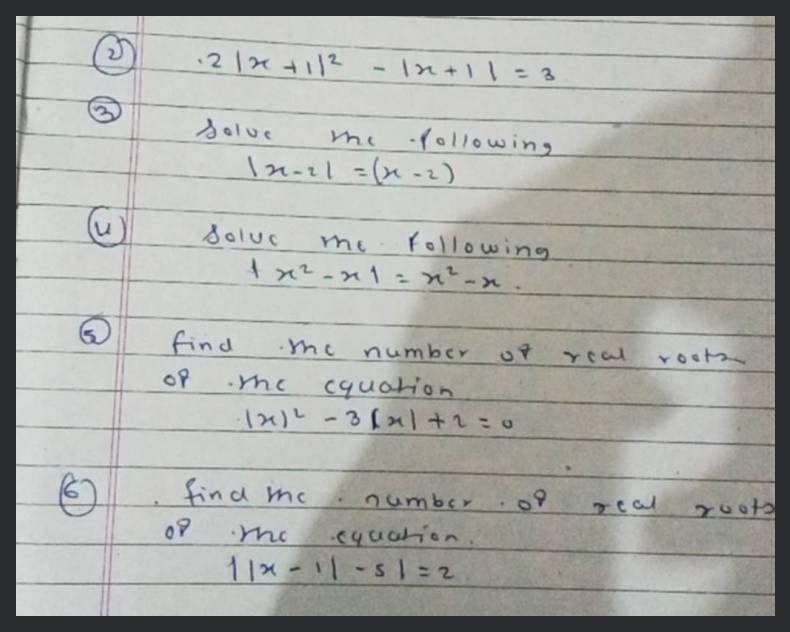 (2) 2|x+1|² - |x+1| = 3
(3)
Solve the following
|x-2| = (x-2)
(4) Solve the following
|x²-x| = x²-x.
(5) find the number of real roots
of the equation
|x|² - 3|x| + 2 = 0
(6) find the number of real roots
of the equation.
||x-1| -5| = 2